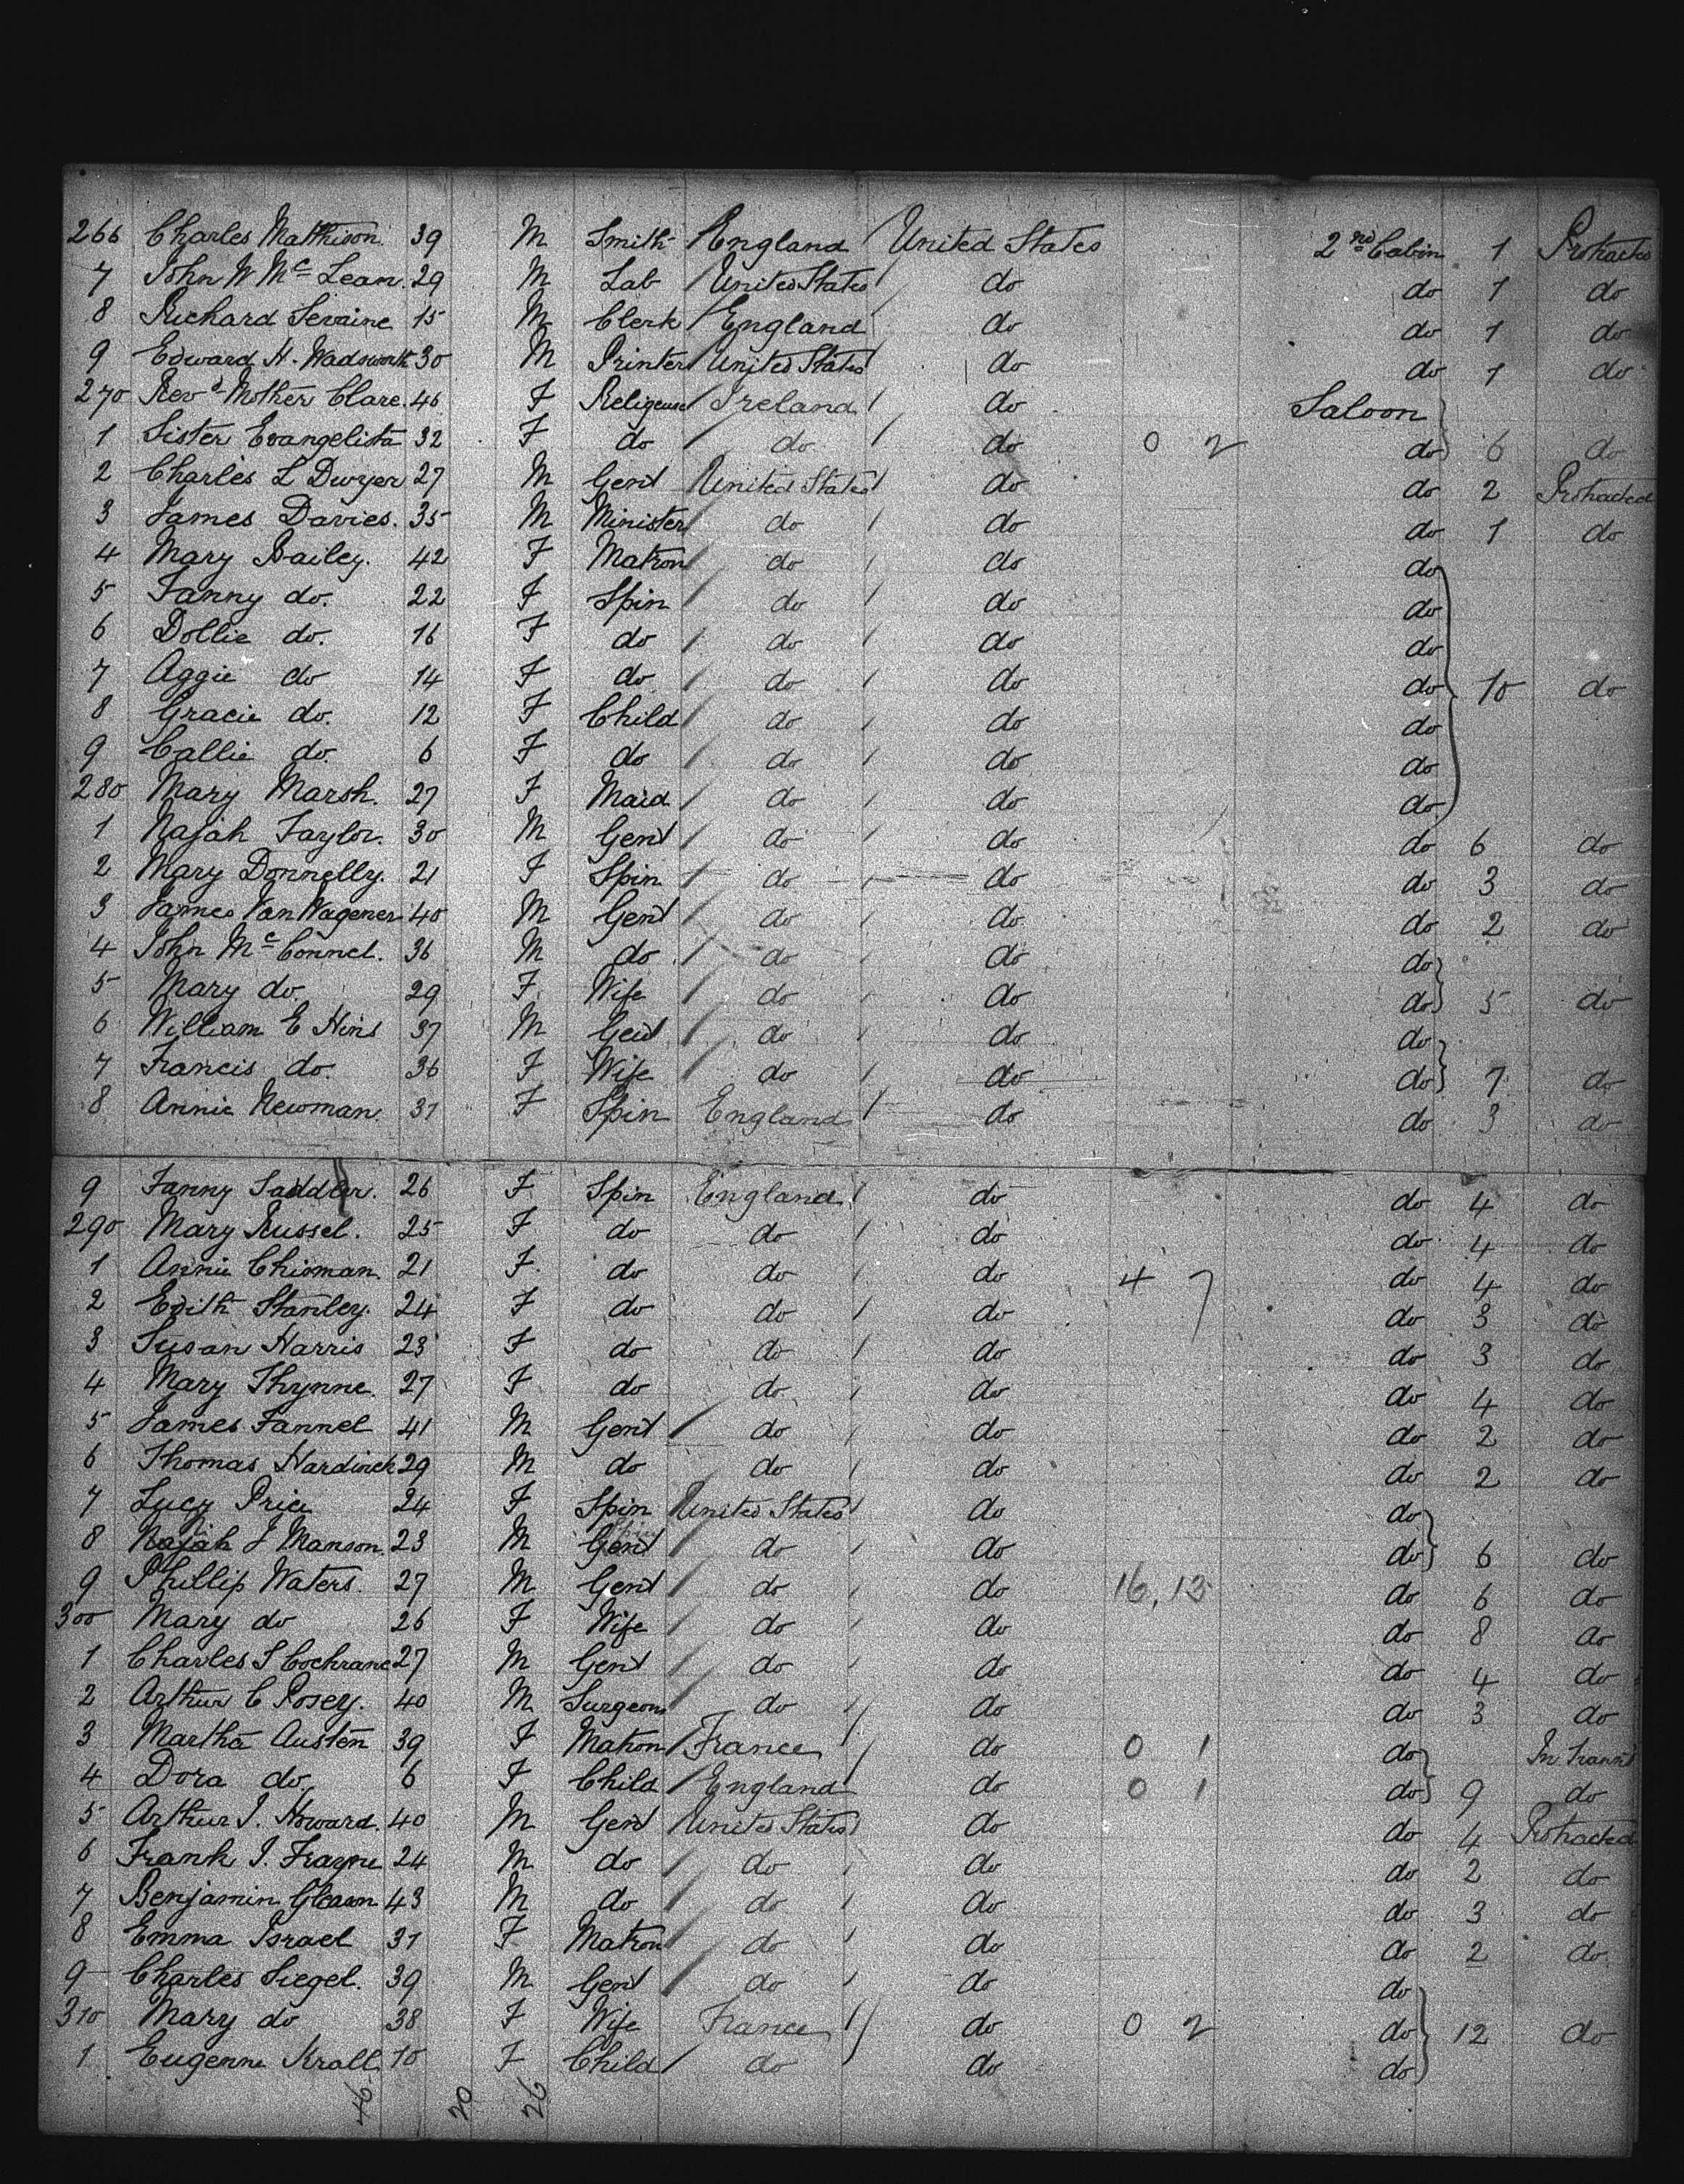 266 Charles Mathison 39 M Smith England United States 2nd Cabin 1 Protracted
7 John W Mc Lean 29 M Lab United States do do 1 do
8 Richard 15 M Clerk England do do 1 do
9 Edward H. Wadsworth 30 M Printer United States do do 1 do
270 Revd Mother Clare 46 F Religeuse Ireland do Saloon
1 Sister Evangelista 32 F do do do 0 2 do 6 do
2 Charles L Dwyer 27 M Gent United States do do 2 Protracted
3 James Davies. 35 M Minister do do do 1 do
4 Mary Bailey. 42 F Matron do do do
5 Fanny do. 22 F Spin do do do
6 Dollie do. 16 F do do do do
7 Aggie do 14 F do do do do 10 do
8 Gracie do. 12 F Child do do do
9 Callie do. 6 F do do do do
280 Mary Marsh. 27 F Maid do do do
1 Najah Taylor. 30 M Gent do do do 6 do
2 Mary Donnelly. 21 F Spin do do do 3 do
3 James Van Wagener 40 M Gent do do do 2 do
4 John Mc Connel. 36 M do do do do
5 Mary do. 29 F Wife do do do 5 do
6 William E Hins 37 M Gent do do do
7 Francis do. 36 F Wife do do do 7 do
8 Annie Newman. 31 F Spin England do do 3 do
9 Fanny Saddler. 26 F Spin England do do 4 do
290 Mary Russel. 25 F do do do do 4 do
1 Annie Chisman. 21 F do do do 4 7 do 4 do
2 Edith Stanley. 24 F do do do do 3 do
3 Susan Harris 23 F do do do do 3 do
4 Mary Thynne. 27 F do do do do 4 do
5 James Fannel 41 M Gent do do do 2 do
6 Thomas 29 M do do do do 2 do
7 Lucy Price 24 F Spin United States do do
8 J Manson. 23 M Gent do do do 6 do
9 Phillip Waters. 27 M Gent do do 16, 13 do 6 do
300 Mary do 26 F Wife do do do 8 do
1 Charles S Cochrane 27 M Gent do do do 4 do
2 Arthur C Posey. 40 M Surgeon do do do 3 do
3 Martha Austen 39 F Matron France do 0 1 do In Transit
4 Dora do. 6 F Child England do 0 1 do 9 do
5 Arthur J. Howard. 40 M Gent United States do do 4 Protracted
6 Frank I. Frayne 24 M do do do do 2 do
7 Benjamin Gleason 43 M do do do do 3 do
8 Emma Israel 31 F Matron do do do 2 do
9 Charles Siegel. 39 M Gent do do do
310 Mary do 38 F Wife France do 0 2 do 12 do
1 Eugenne Krall 10 F Child do do do
46 20 26